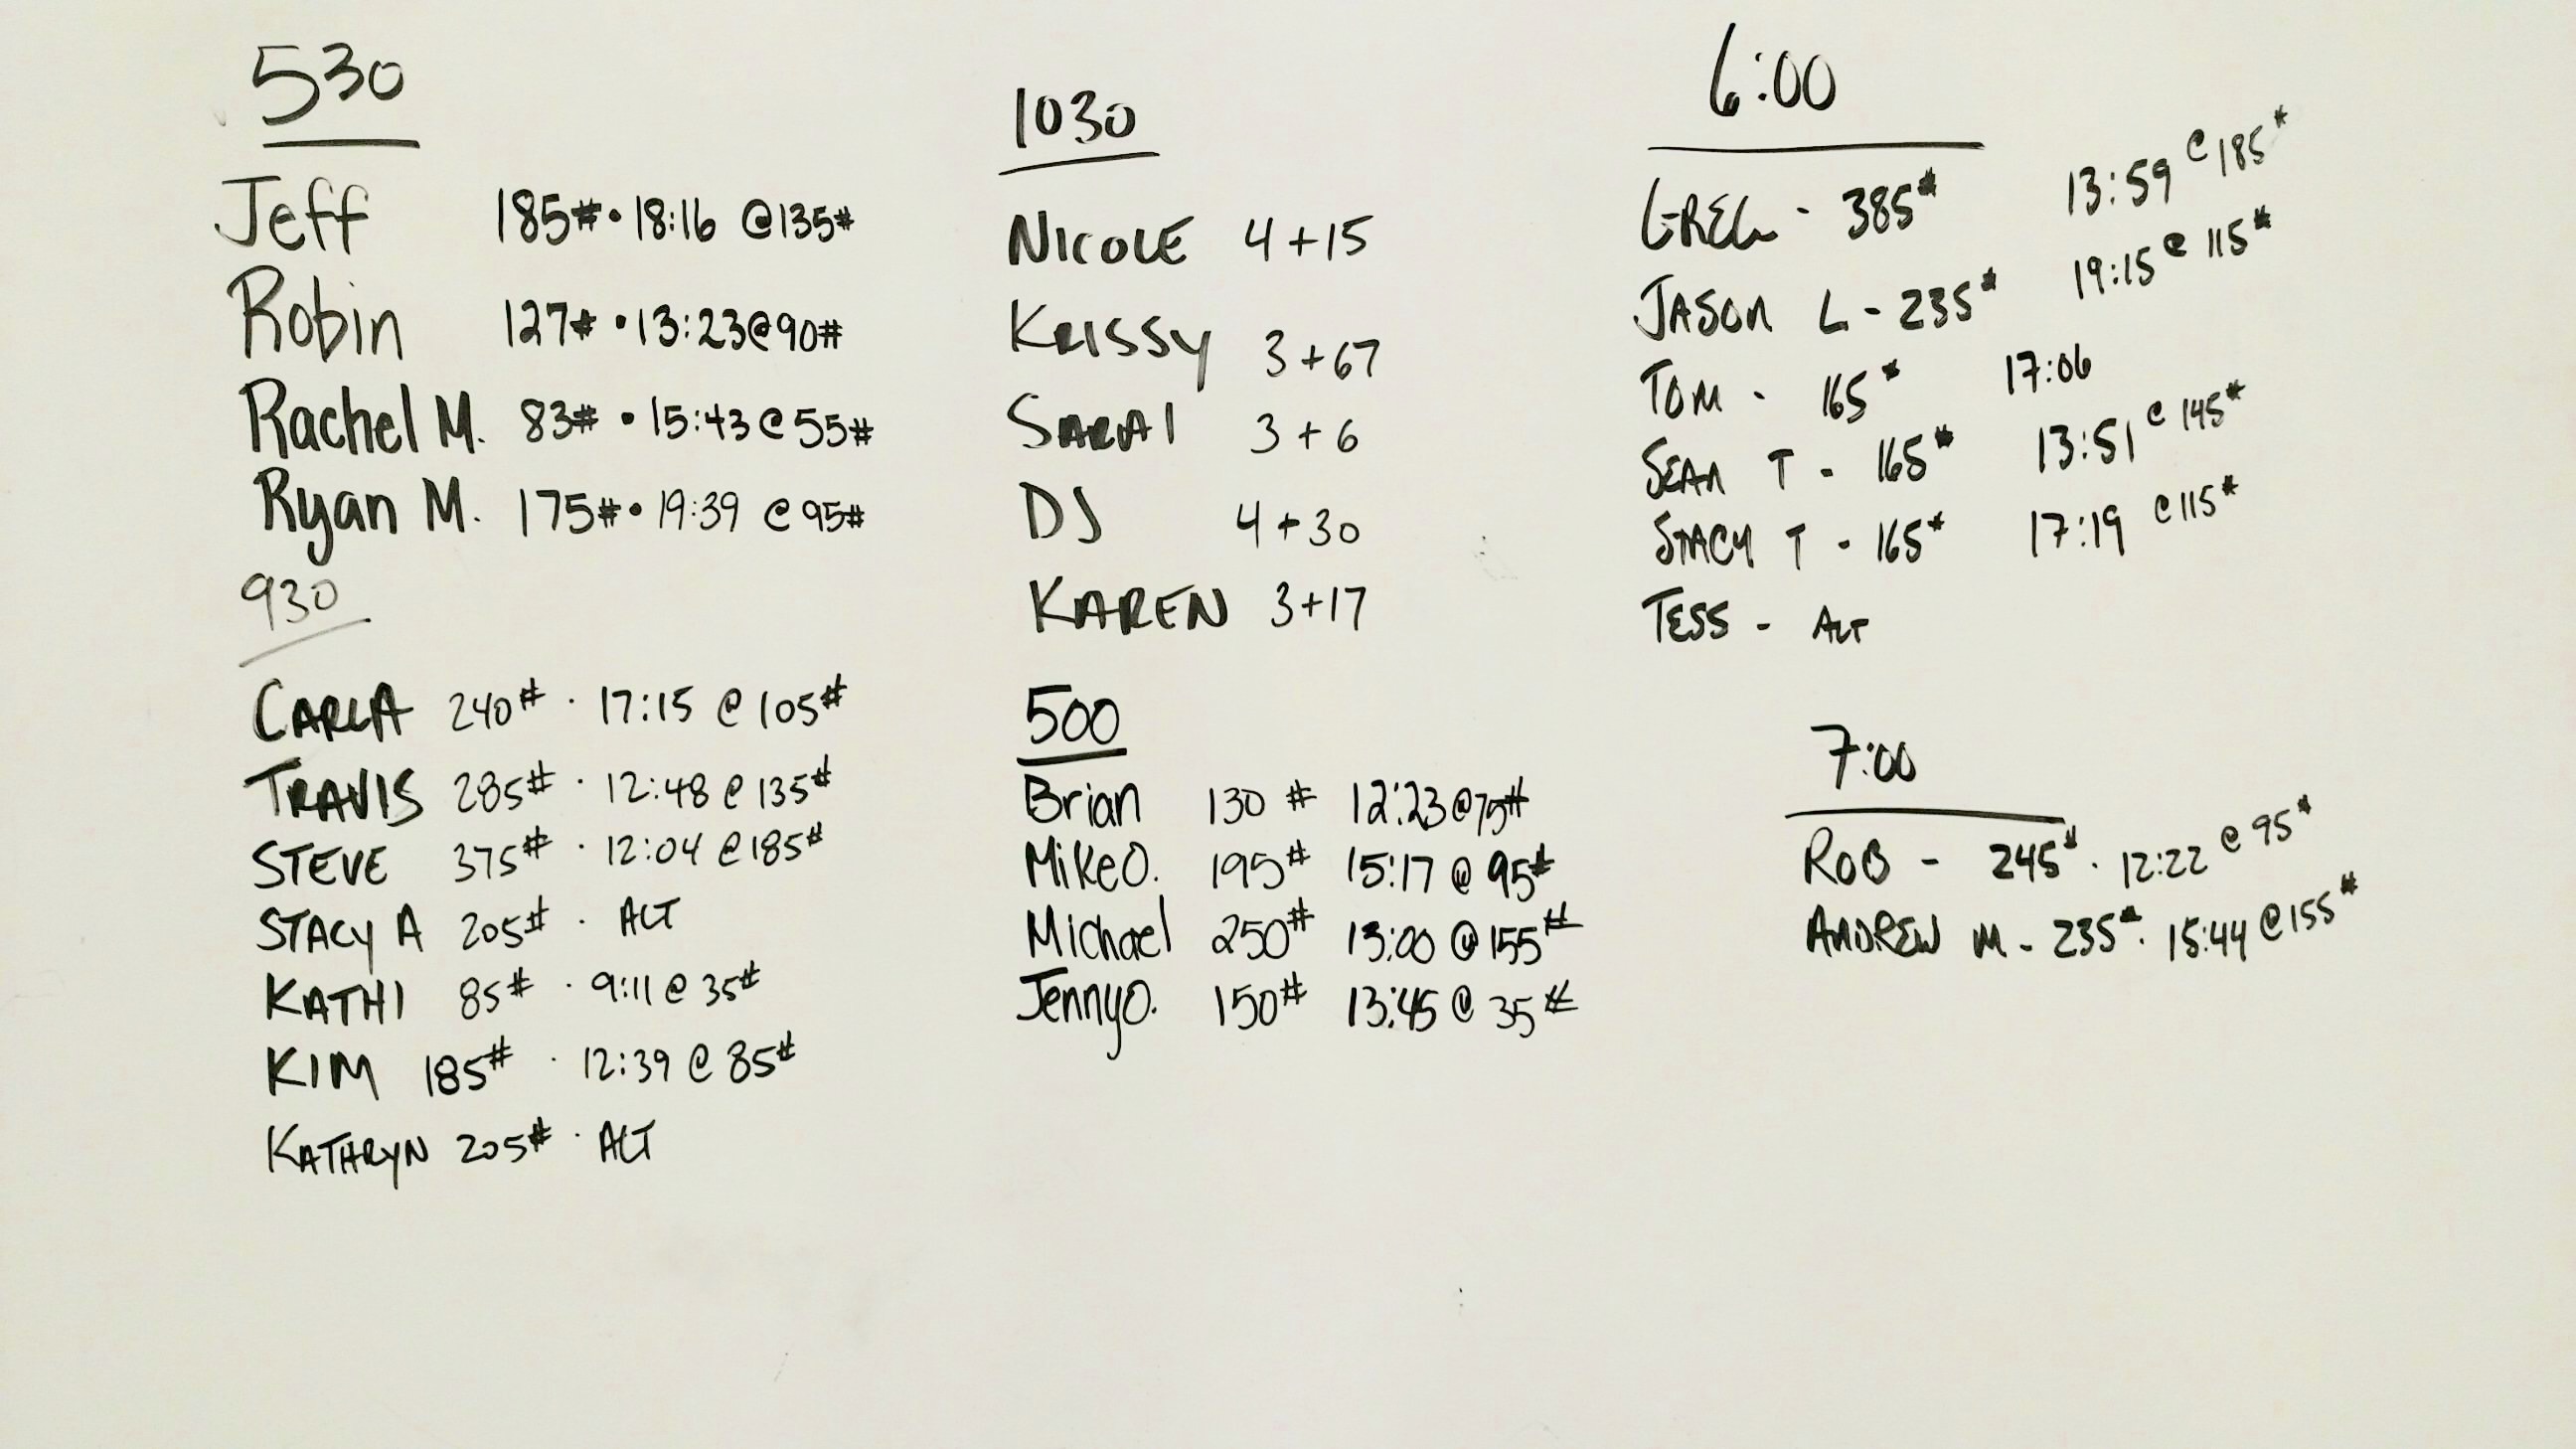 530
Jeff 185# • 18:16 @135#
Robin 127# • 13:23@90#
Rachel M. 83# • 15:43@55#
Ryan M. 175# • 19:39 @95#
930
CARLA 240# · 17:15 @ 105#
TRAVIS 285# · 12:48 @ 135#
STEVE 375# · 12:04 @185#
STACY A 205# · ALT
KATHI 85# · 9:11 @ 35#
KIM 185# · 12:39 @ 85#
KATHRYN 205# · ALT
1030
NICOLE 4+15
KRISSY 3+67
SARAI 3+6
DJ 4+30
KAREN 3+17
500
Brian 130 # 12:23@75#
Mike O. 195# 15:17 @ 95#
Michael 250# 13:00 @155#
Jenny O. 150# 13:45 @ 35#
6:00
GREG - 385# 13:59 @185#
JASON L - 235# 19:15 @ 115#
TOM - 165# 17:06
SEAN T - 165# 13:51 @ 145#
STACY T - 165# 17:19 @115#
TESS - ALT
7:00
ROB - 245# · 12:22 @ 95#
ANDREW M - 235# · 15:44 @155#